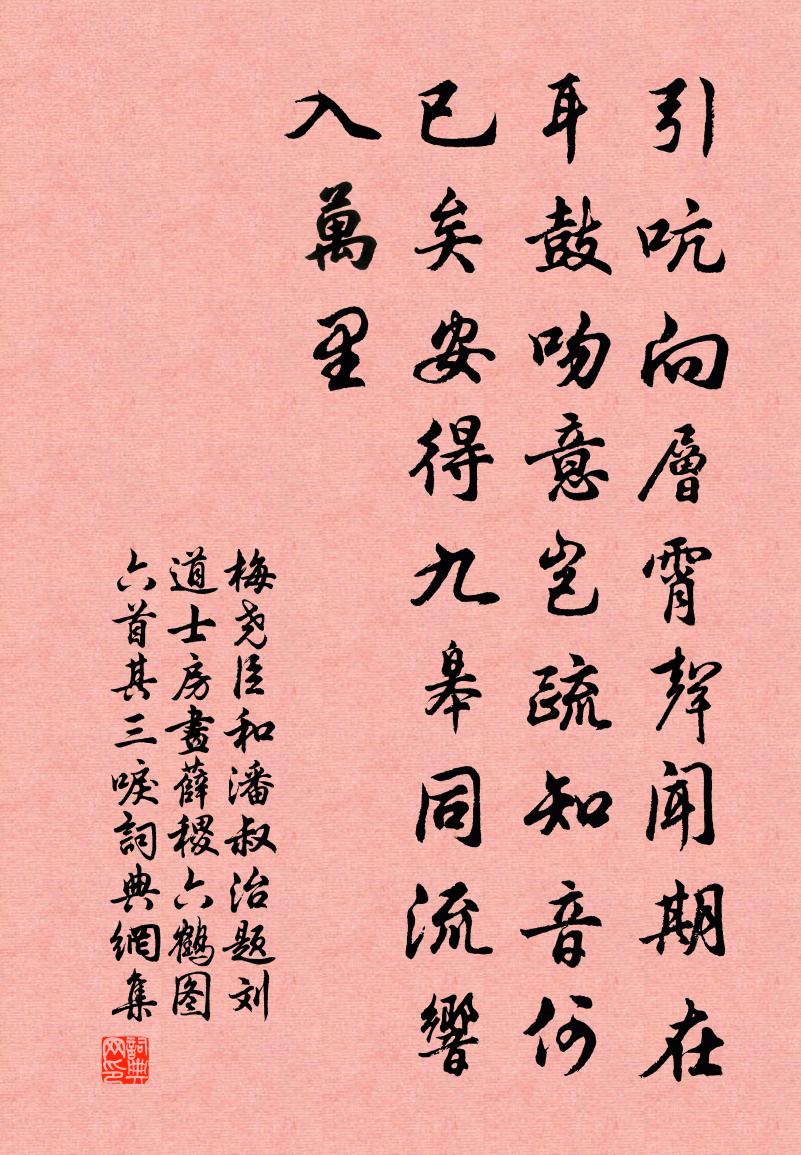 引吭向層霄聲聞期在
耳鼓吻意岂疏知音何
已矣安得九皋同流響
入萬里
梅尧臣和潘叔治题刘
道士房畫薛稷六鶴图
六首其三唳詞典網集
詞典网印